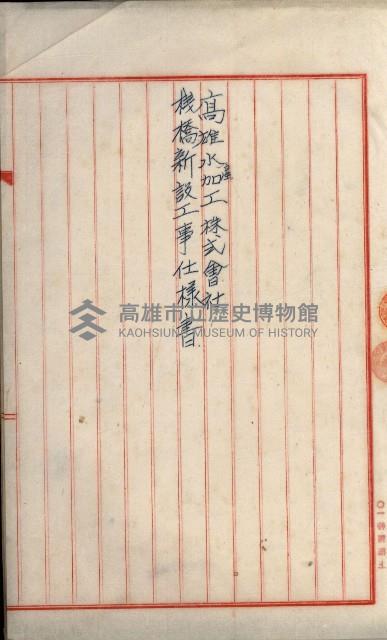 高雄水產加工株式會社
棧橋新設工事仕様書
高雄市立歷史博物館
KAOHSIUNG MUSEUM OF HISTORY